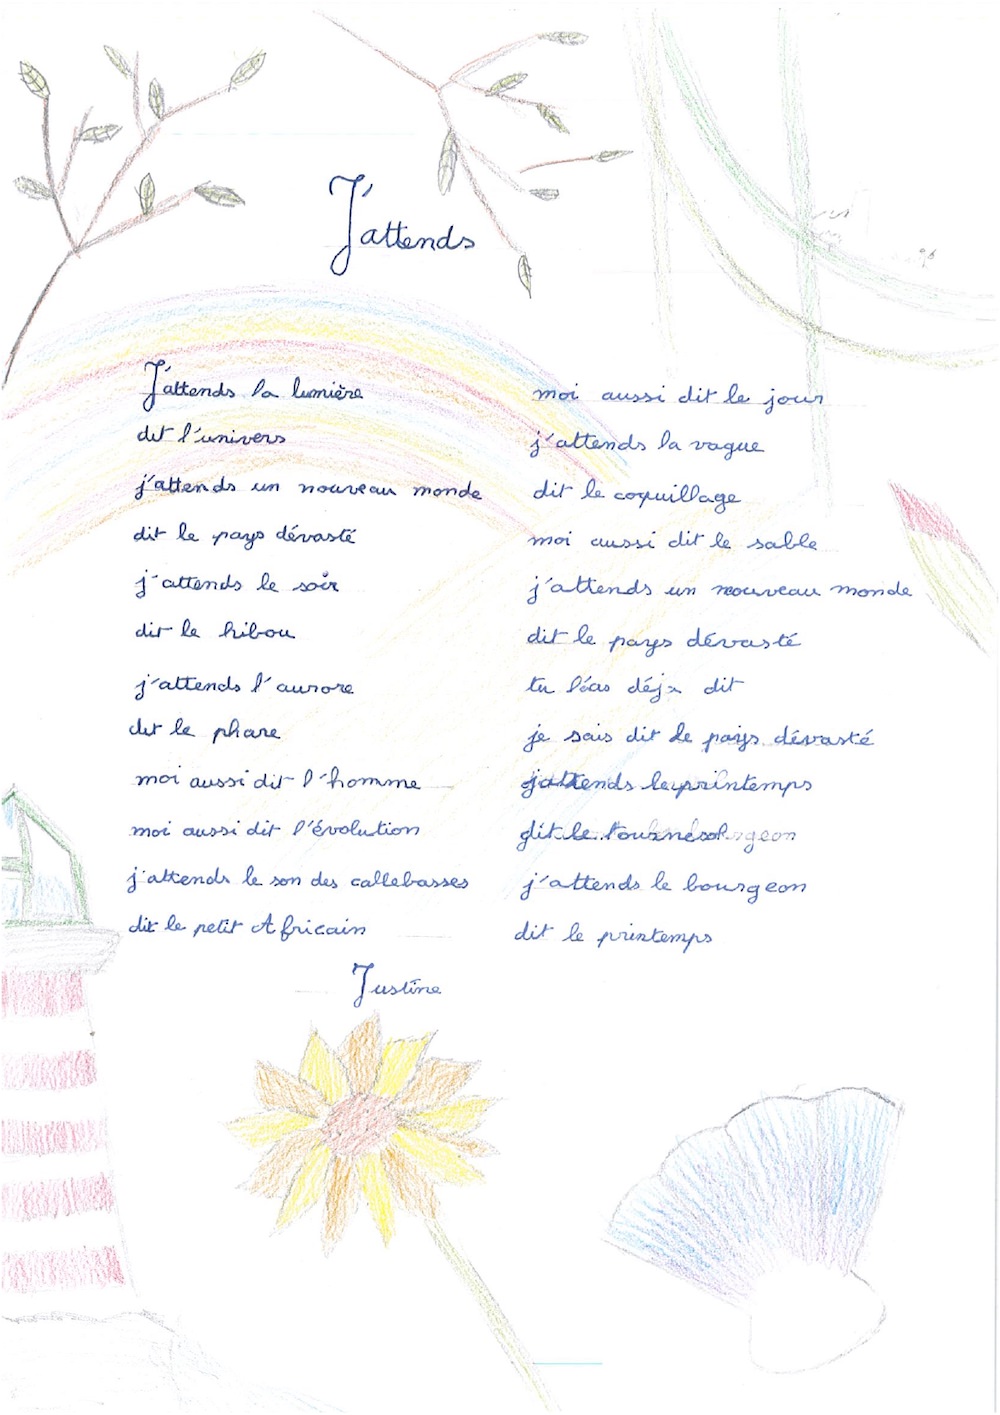 J'attends
J'attends la lumière
dit l'univers
j'attends un nouveau monde
dit le pays dévasté
j'attends le soir
dit le hibou
j'attends l'aurore
dit le phare
moi aussi dit l'homme
moi aussi dit l'évolution
j'attends le son des callebasses
dit le petit Africain
moi aussi dit le jour
j'attends la vague
dit le coquillage
moi aussi dit le sable
j'attends un nouveau monde
dit le pays dévasté
tu l'as déjà dit
je sais dit le pays dévasté
j'attends le printemps
dit le tournesol
j'attends le bourgeon
dit le printemps
Justine